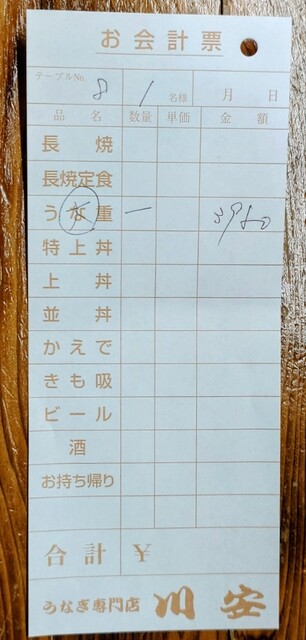 お会計票
テーブルNo. 8 1 名様 月 日
品名 数量 単価 金額
長焼
長焼定食
うな重 一 3980
特上丼
上丼
並丼
かえで
きも吸
ビール
酒
お持ち帰り
合計 ¥
うなぎ専門店 川安